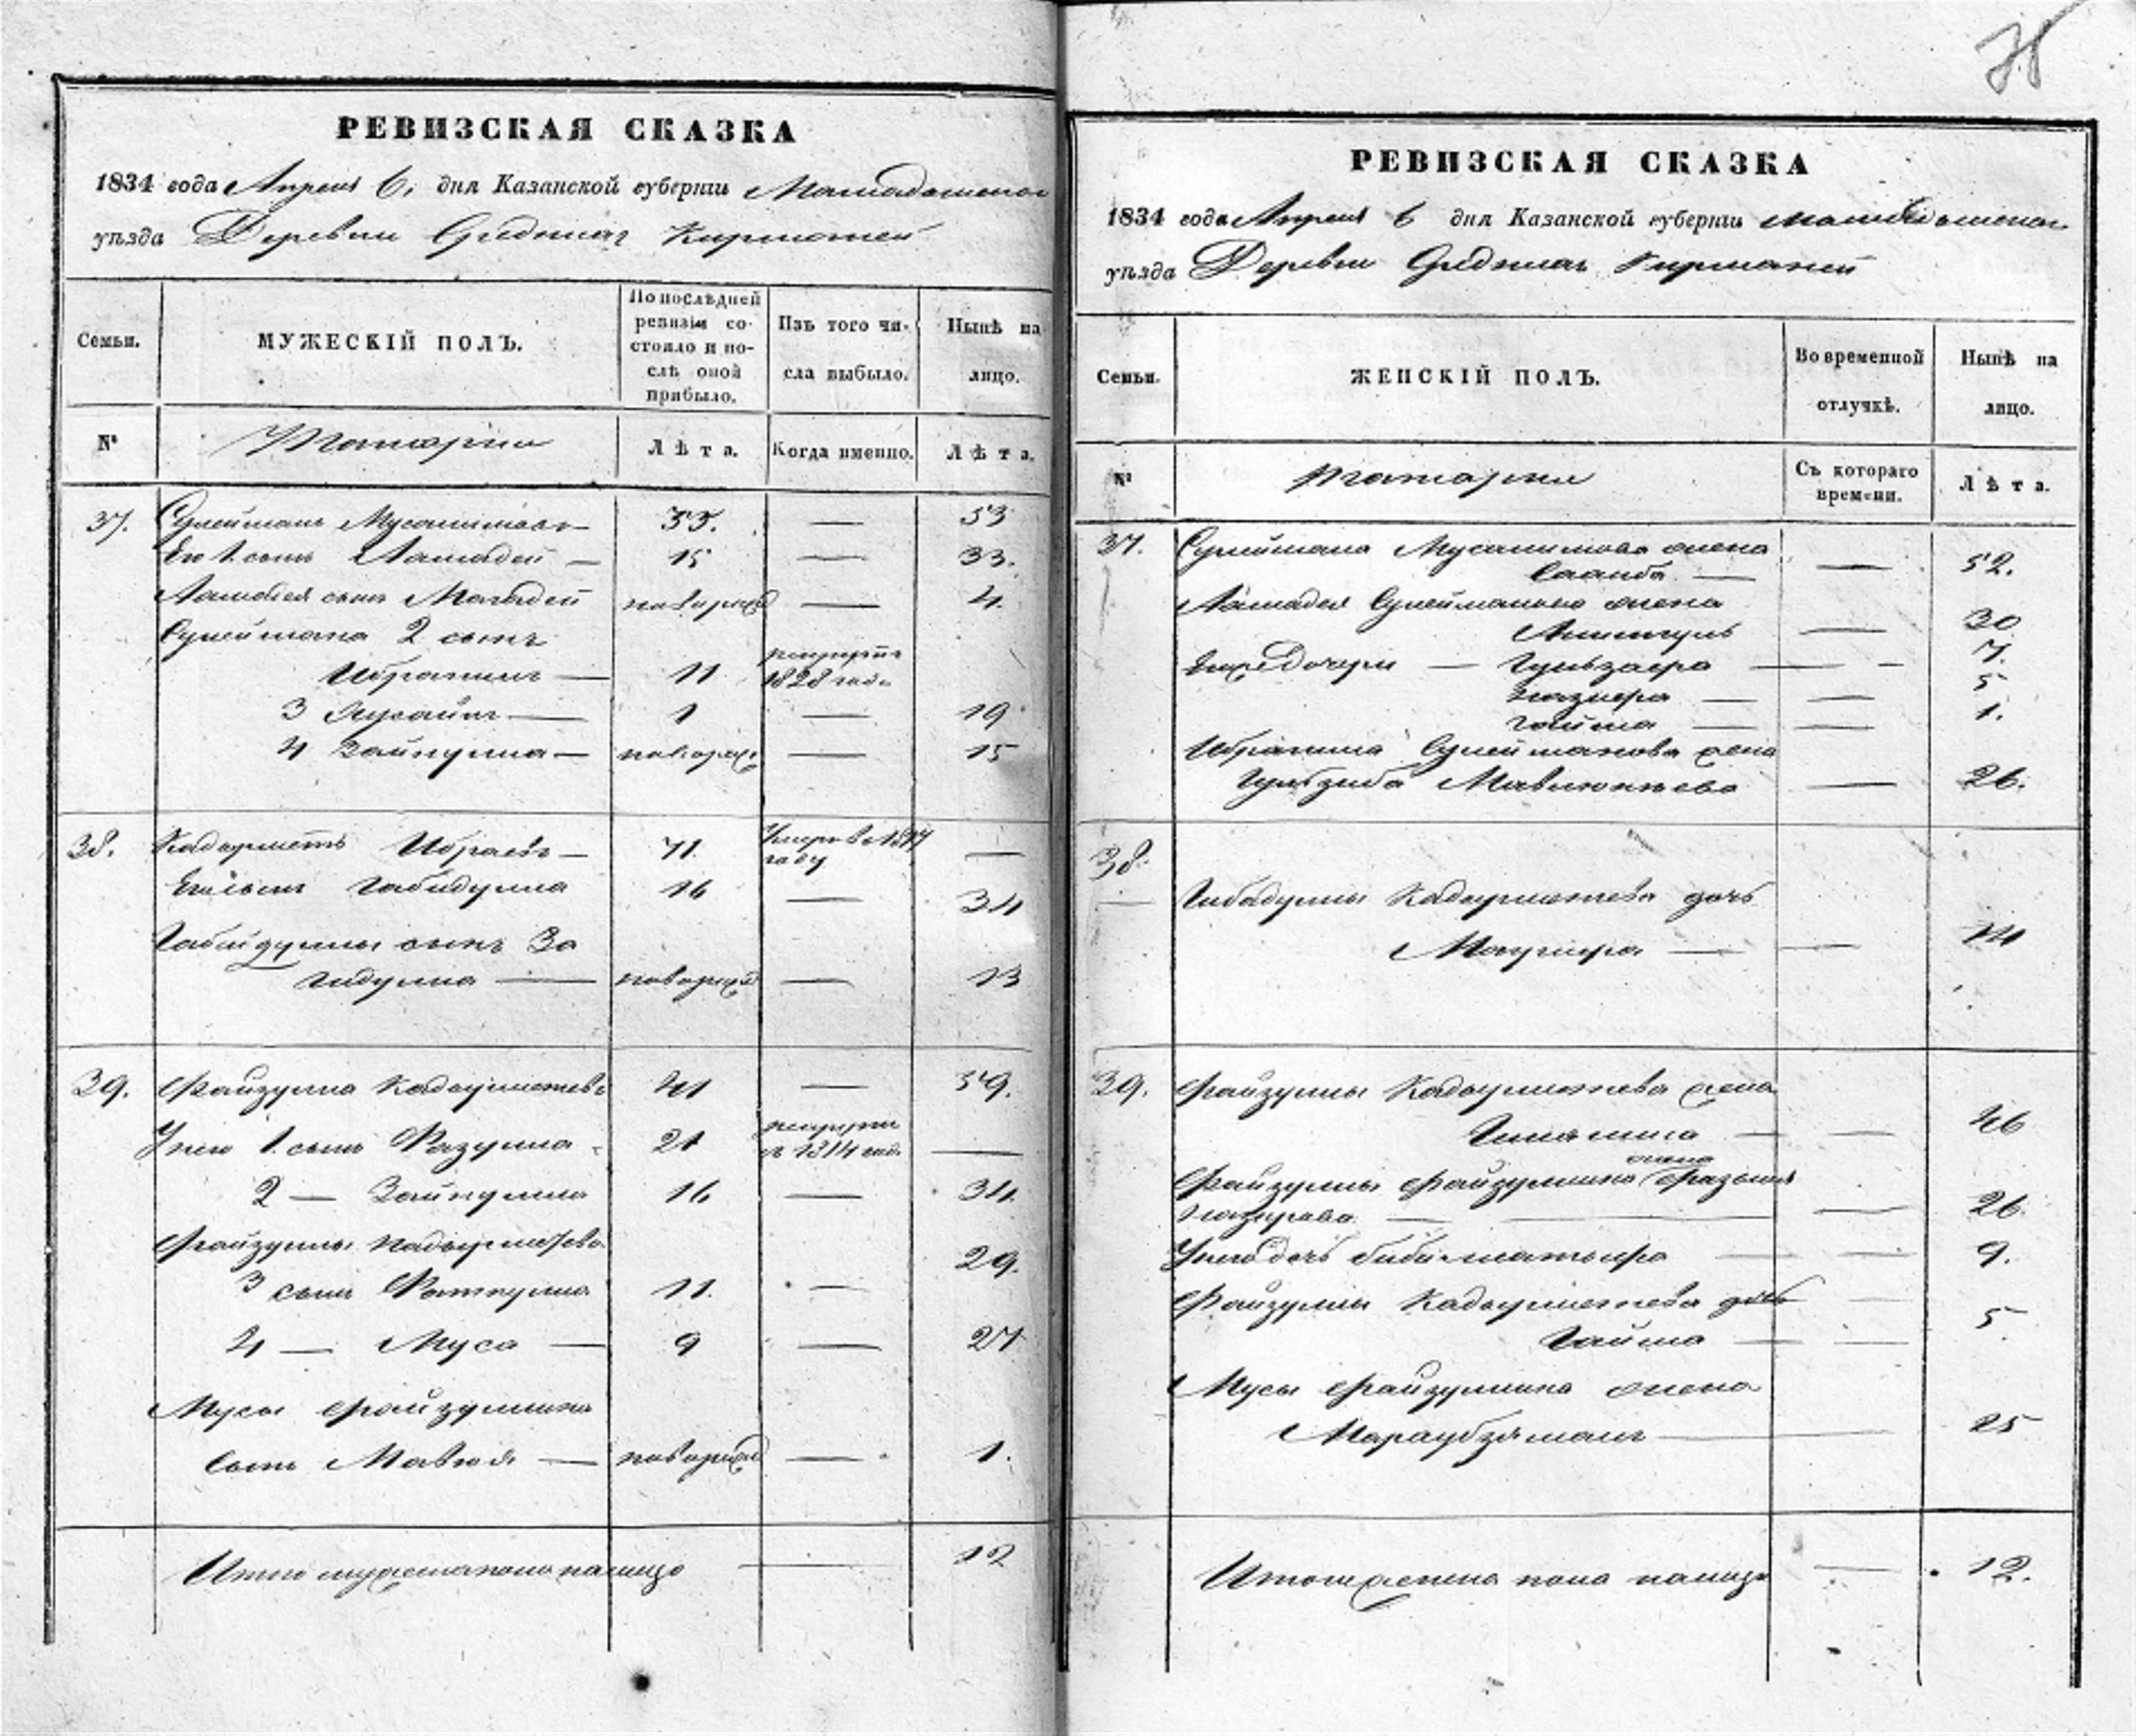 РЕВИЗСКАЯ СКАЗКА
1834 года Апреля 6, дня Казанской губерніи Мамадышскаго
уѣзда Деревни Средних Кирмяней
Семьи.
МУЖЕСКІЙ ПОЛЪ.
По послѣдней ревизіи состояло и послѣ оной прибыло.
Изъ того числа выбыло.
Нынѣ на лицо.
№
Татары
Лѣта.
Когда именно.
Лѣта.
37. Сулейманъ — 53
Его 1 сынъ — 15 — 33.
сынъ новорожд — 4.
Сулеймана 2 сынъ
Ибрагимъ — 11 рекрутъ 1828 года
3 — 1 — 19
4 Зайнулла — новорожд — 15
38. Кадырметъ Ибраевъ — 71 Умеръ въ 1817 году —
Его сынъ Габидулла 16 — 34
Габидуллы сынъ За
гидулла — новорожд — 13
39. Файзулла Кадырметевъ 41 — 59.
У него 1 сынъ Фазулла 21 рекрутъ в 1814 годе —
2 — Зайнулла 16 — 34.
Файзуллы Кадырметева
3 сынъ Фаткулла 11. — 29.
4 — Муса — 9 — 27
Мусы Файзуллина
сынъ — новорожд — 1.
Итого мужеска пола налицо — 12
РЕВИЗСКАЯ СКАЗКА
1834 года Апреля 6 дня Казанской губерніи Мамадышскаго
уѣзда Деревни Средних Кирмяней
Семьи.
ЖЕНСКІЙ ПОЛЪ.
Во временной отлучкѣ.
Нынѣ на лицо.
№
татары
Съ котораго времени.
Лѣта.
37. Сулеймана жена
— — 52.
Сулейманова жена
— 30
Ихъ дочери — Гульзафра — — 7.
— — 5
Гайша — — 1.
Ибрагима Сулейманова жена
— 26.
38.
— Габидуллы Кадырметева дочь
— — 14
39. Файзуллы Кадырметева жена
— — 46
жена
Файзуллы Файзуллина
— — — 26.
У него дочь — — 9.
Файзуллы Кадырметева дочь —
Гайша — — 5
Мусы Файзуллина жена
— 25
Итого женска пола налицо — 12.